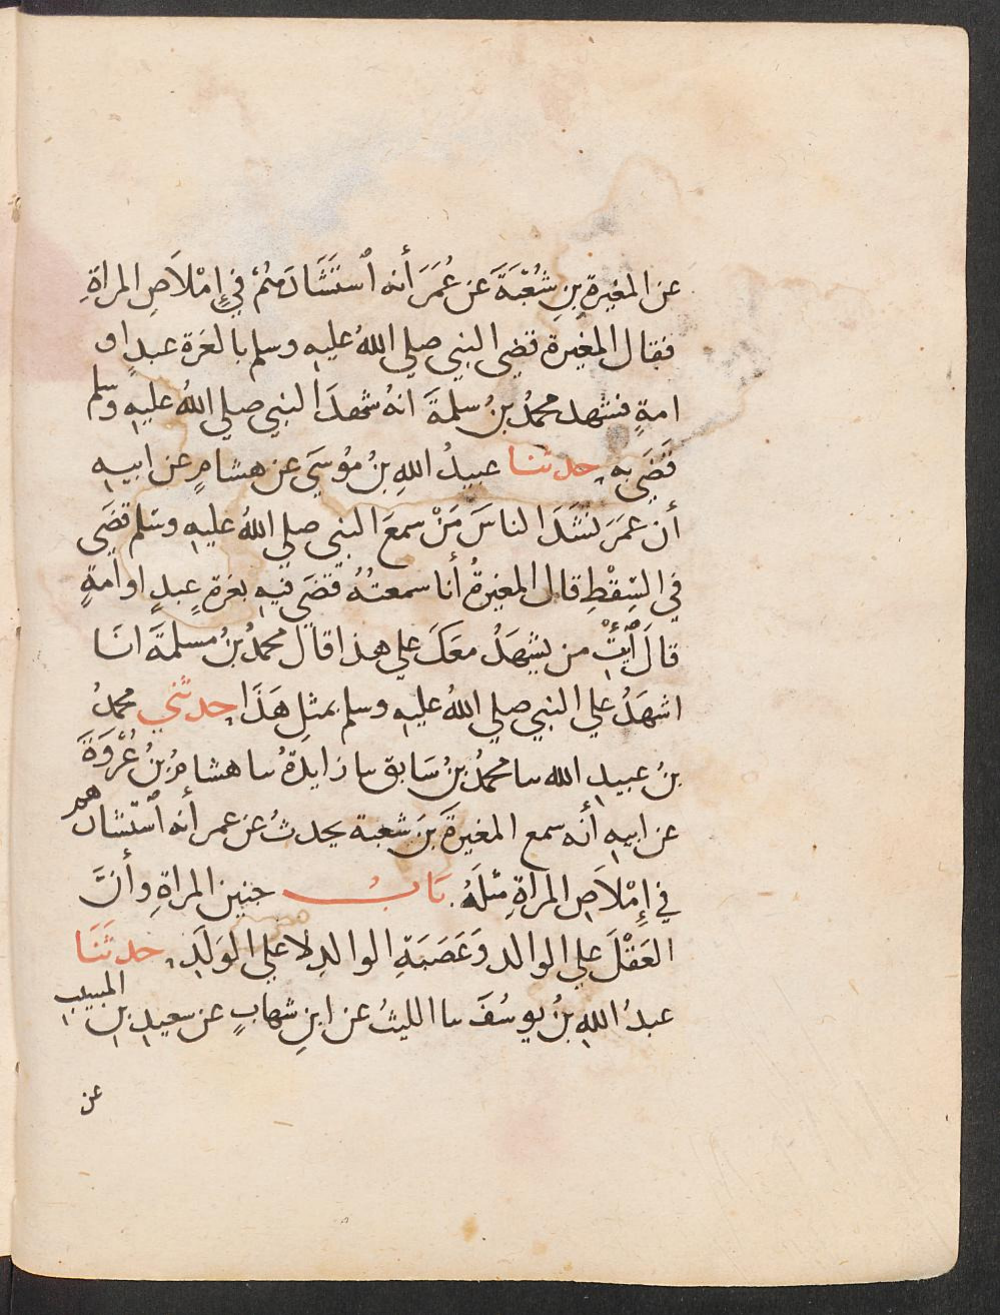 عن المغيرة بنِ شُعْبَةَ عن عُمَرَ أنه ٱستَشَارَهُمْ في إِمْلاَصِ المراةِ
فقال المغيرة قضى النبي صلى اللهُ عليهِ وسلم بالغرة عبدٍ او
امةٍ فشهد محمدُ بنُ سلمةَ انهُ شهدَ النبي صلى اللهُ عليهِ وسلم
قَضَى بهِ حدثنا عبيدُ اللهِ بنُ مُوسَى عن هشامٍ عن ابيهِ
أن عمَرَ نَشَدَ الناسَ مَنْ سمعَ النبي صلى اللهُ عليهِ وسَلم قضَى
في السِقْطِ قال المغيرةُ أنا سمعتُهُ قضَى فيهِ بغرةٍ عبدٍ او امةٍ
قالَ ٱئْتِ من يشهَدُ معَكَ على هذا قال محمدُ بنُ مسلمةَ انَا
اشهَدُ على النبي صلى اللهُ عليهِ وسلم بمثلِ هَذَا حدثني محمدُ
بنُ عبيدِ الله سا محمدُ بنُ سَابق سا زايدةُ سا هشامُ بنُ عُرْوَةَ
عن ابيهِ أنه سمع المغيرةَ بنَ شعبة يحدثُ عن عمر أنه ٱستَشارهم
في إِمْلاَصِ المرأةِ مثلَهُ بَابُ جنين المراةِ وأنَّ
العَقْلَ على الوالد وَعَصَبَةِ الوالدِ لا على الوَلَدِ حدثَنَا
عبدُ اللهِ بنُ يوسُفَ سا الليثُ عن ابنِ شهابٍ عن سعيدِ بنِ المسيبِ
عن